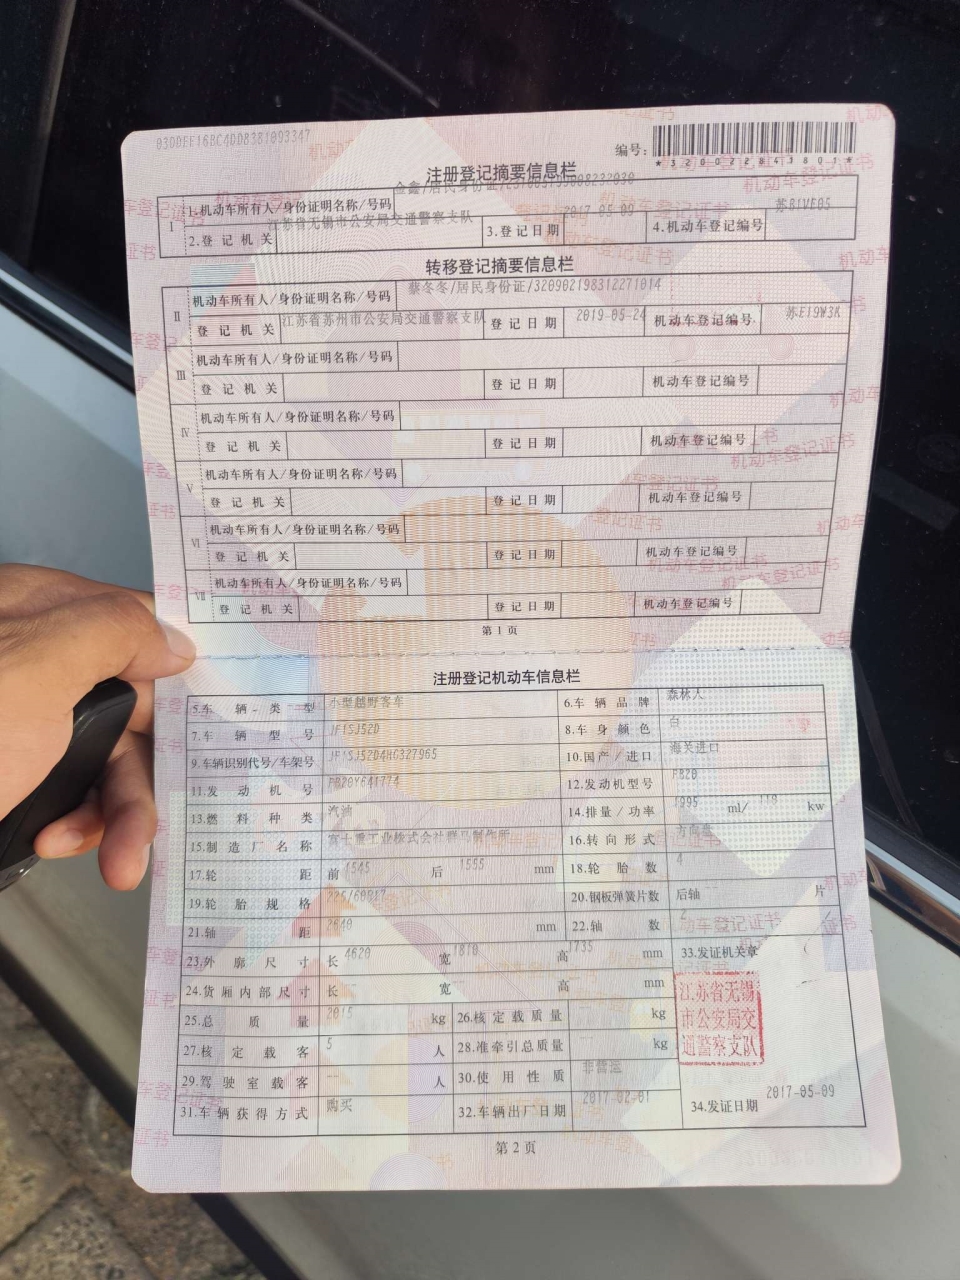 030DEF16BC4DD8381093347
编号:
*320022841801*
注册登记摘要信息栏
I 1.机动车所有人/身份证明名称/号码 金鑫/居民身份证/
2.登记机关 江苏省无锡市公安局交通警察支队 3.登记日期 2017-05-09 4.机动车登记编号 苏B1VE05
转移登记摘要信息栏
II 机动车所有人/身份证明名称/号码 蔡冬冬/居民身份证/320902198312271014
登记机关 江苏省苏州市公安局交通警察支队 登记日期 2019-05-24 机动车登记编号 苏E19W3K
III 机动车所有人/身份证明名称/号码
登记机关 登记日期 机动车登记编号
IV 机动车所有人/身份证明名称/号码
登记机关 登记日期 机动车登记编号
V 机动车所有人/身份证明名称/号码
登记机关 登记日期 机动车登记编号
VI 机动车所有人/身份证明名称/号码
登记机关 登记日期 机动车登记编号
VII 机动车所有人/身份证明名称/号码
登记机关 登记日期 机动车登记编号
第1页
注册登记机动车信息栏
5.车辆类型 小型越野客车 6.车辆品牌 森林人
7.车辆型号 JF1SJ52D 8.车身颜色 白
9.车辆识别代号/车架号 JF1SJ52D4HG327965 10.国产/进口 海关进口
11.发动机号 FB20Y641774 12.发动机型号 FB20
13.燃料种类 汽油 14.排量/功率 1995 ml/ 110 kw
15.制造厂名称 富士重工业株式会社群马制作所 16.转向形式 方向盘
17.轮距 前 1545 后 1555 mm 18.轮胎数 4
19.轮胎规格 225/60R17 20.钢板弹簧片数 后轴 -- 片
21.轴距 2640 mm 22.轴数 2
23.外廓尺寸 长 4620 宽 1810 高 1735 mm 33.发证机关章
24.货厢内部尺寸 长 -- 宽 -- 高 -- mm
江苏省无锡
市公安局交
通警察支队
25.总质量 2015 kg 26.核定载质量 -- kg
27.核定载客 5 人 28.准牵引总质量 -- kg
29.驾驶室载客 -- 人 30.使用性质 非营运
31.车辆获得方式 购买 32.车辆出厂日期 2017-02-01 34.发证日期 2017-05-09
第2页